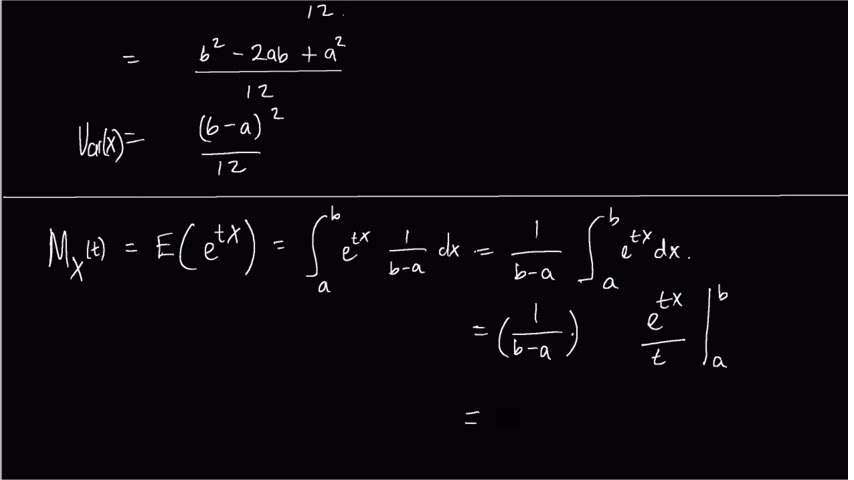 12.
= b² - 2ab + a² / 12
Var(X) = (b-a)² / 12
M_X(t) = E(e^{tX}) = ∫_a^b e^{tx} 1/(b-a) dx = 1/(b-a) ∫_a^b e^{tx} dx.
= (1/(b-a).) e^{tx}/t |_a^b
=